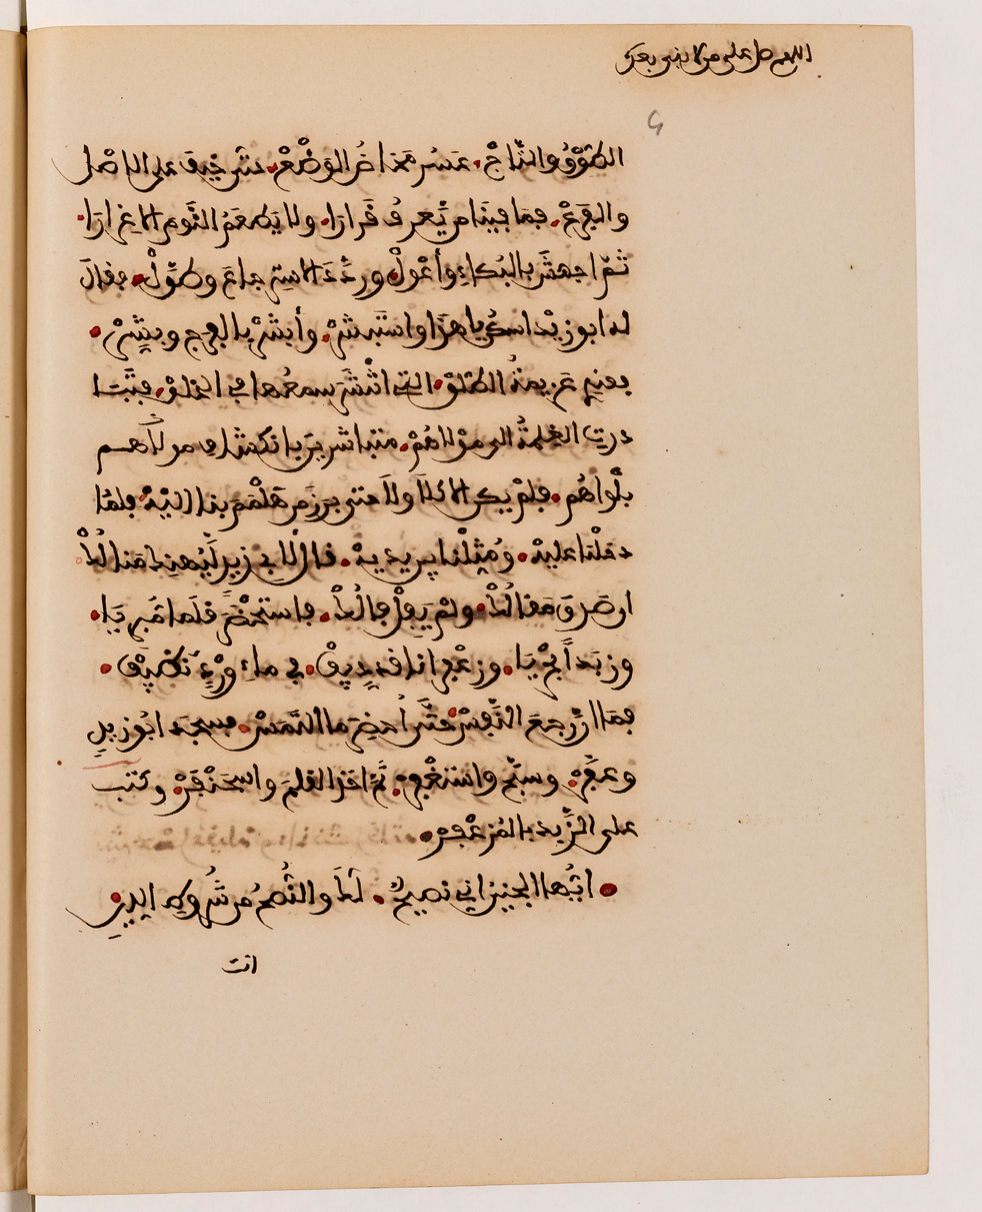 اللهم صل على من لا نبي بعده
الطوق والتاج. عسر مخاض الوضع. حتى خيف على الاصل
والفرع. فما فينا من يعرف قرارا. ولا يطعم النوم الا غرارا.
ثم اجهش بالبكاء وأعول. وردد الاسترجاع وطول. فقال
له ابو زيد اسكن يا هذا واستبشر. وأبشر بالفرج وبشر.
فعندي عزيمة الطلق. التي انتشر سمعها في الخلق. فتبا
درت الغلمة الى مولاهم. متباشرين بانكشاف
بلواهم. فلم يكن الا كلا ولا حتى برز من هلمم بنا اليه. فلما
دخلنا عليه. ومثلنا بين يديه. قال لابي زيد ليهنك منالك
ان صدق مقالك. ولم يفل فالك. فاستحضر قلما مبريا.
وزبدا بحريا. وزعفرانا قد ديف. في ماء ورد نظيف.
فما ان رجع النفس. حتى أحضر ما التمس. فسجد ابو زيد
وعفر. وسبح واستغفر. ثم اخذ القلم واسحنفر. وكتب
على الزبد بالمزعفر.
ايها الجنين اني نصيح. لك والنصح من شروط الدين
انت